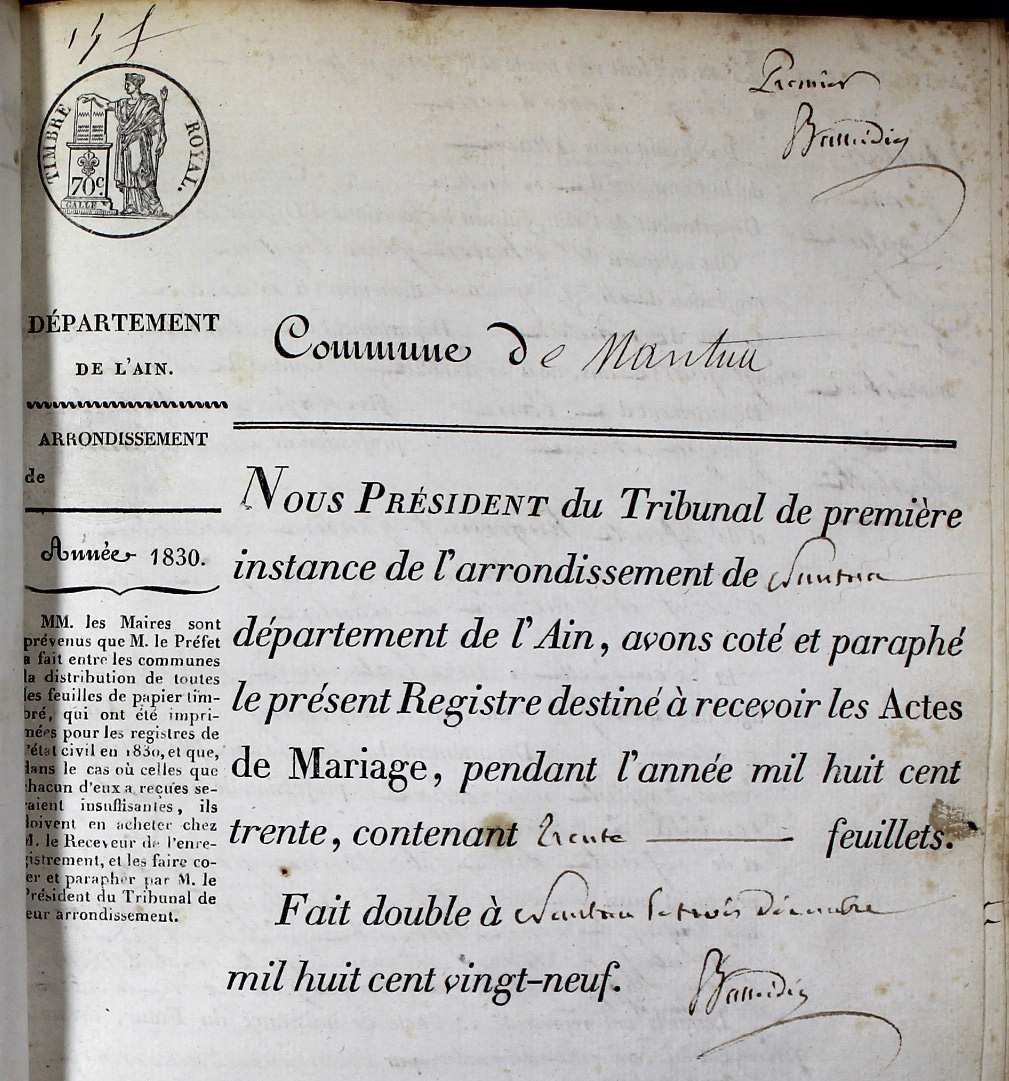 TIMBRE ROYAL.
70c.
GALLE
Premier
DÉPARTEMENT
DE L'AIN.
ARRONDISSEMENT
de
Année 1830.
MM. les Maires sont
prévenus que M. le Préfet
a fait entre les communes
la distribution de toutes
les feuilles de papier tim-
bré, qui ont été impri-
mées pour les registres de
l'état civil en 1830, et que,
dans le cas où celles que
chacun d'eux a reçues se-
raient insuffisantes, ils
doivent en acheter chez
M. le Receveur de l'enre-
gistrement, et les faire co-
ter et parapher par M. le
Président du Tribunal de
leur arrondissement.
Commune de Nantua
NOUS PRÉSIDENT du Tribunal de première
instance de l'arrondissement de Nantua
département de l'Ain, avons coté et paraphé
le présent Registre destiné à recevoir les Actes
de Mariage, pendant l'année mil huit cent
trente, contenant trente feuillets.
Fait double à Nantua le trois décembre
mil huit cent vingt-neuf.